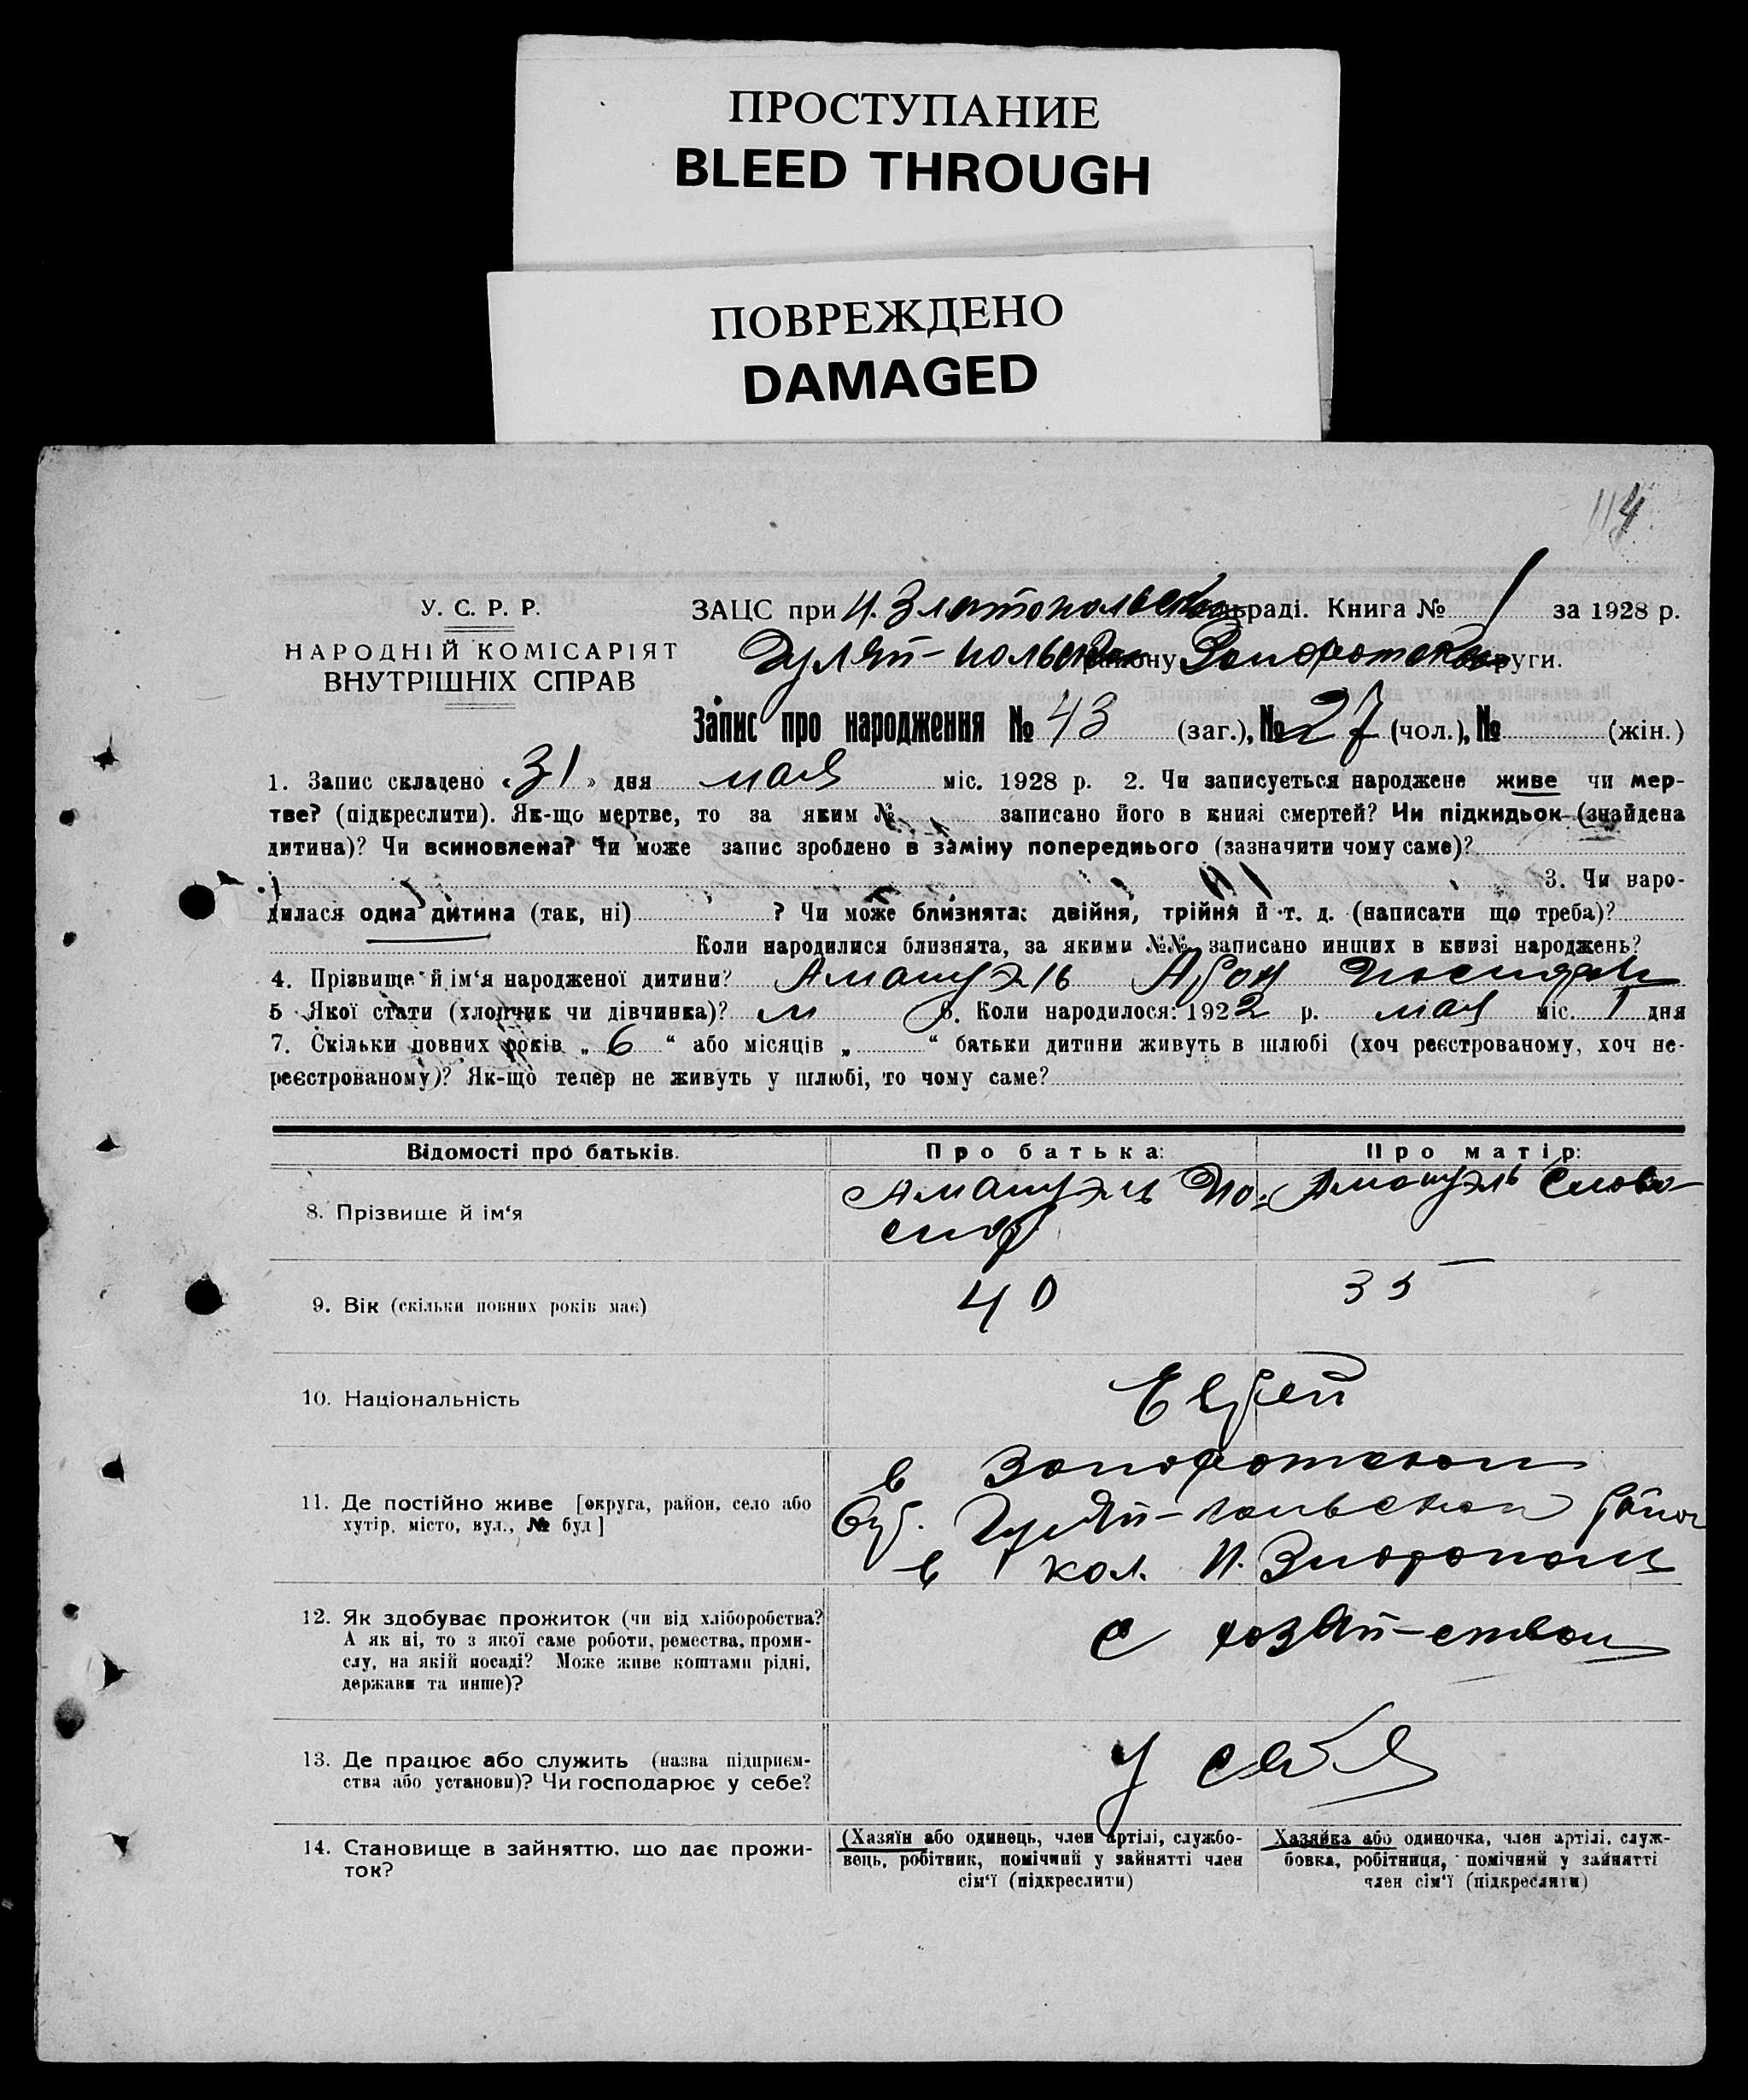 ПРОСТУПАНИЕ
BLEED THROUGH
ПОВРЕЖДЕНО
DAMAGED
114
У. С. Р. Р.
НАРОДНІЙ КОМІСАРІЯТ
ВНУТРІШНІХ СПРАВ
ЗАЦС при Н. Златопольской раді. Книга № 1 за 1928 р.
Гуляй-польск району Запорожской округи.
Запис про народження № 43 (заг.), № 27 (чол.), № (жін.)
1. Запис складено «31» дня мая міс. 1928 р. 2. Чи записується народжене живе чи мер-
тве? (підкреслити). Як-що мертве, то за яким № записано його в книзі смертей? Чи підкидьок (знайдена
дитина)? Чи всиновлена? Чи може запис зроблено в заміну попереднього (зазначити чому саме)?
3. Чи наро-
дилася одна дитина (так, ні) ? Чи може близнята: двійня, трійня й т. д. (написати що треба)?
Коли народилися близнята, за якими №№ записано инших в книзі народжень?
4. Прізвище й ім‘я народженої дитини? Амануэль Арон
5 Якої стати (хлопчик чи дівчинка)? м 6. Коли народилося: 1922 р. мая міс. 1 дня
7. Скільки повних років „ 6 “ або місяців „ “ батьки дитини живуть в шлюбі (хоч реєстрованому, хоч не-
реєстрованому)? Як-що тепер не живуть у шлюбі, то чому саме?
Відомості про батьків. Про батька: Про матір:
8. Прізвище й ім‘я Амануэль Ио- Амануэль
сиф
9. Вік (скільки повних років має) 40 35
10. Національність Еврей
11. Де постійно живе [округа, район, село або
хутір, місто, вул., № буд]
в Запорожском
Гуляй-польском район
в кол. Н. Златополь
12. Як здобуває прожиток (чи від хліборобства?
А як ні, то з якої саме роботи, ремества, проми-
слу, на якій посаді? Може живе коштами рідні,
держави та инше)?
с хозяй-ством
13. Де працює або служить (назва підприєм-
ства або установи)? Чи господарює у себе?
у себя
14. Становище в зайняттю, що дає прожи-
ток?
(Хазяїн або одинець, член артілі, службо-
вець, робітник, помічний у зайнятті член
сім‘ї (підкреслити)
Хазяйка або одиночка, член артілі, служ-
бовка, робітниця, помічний у зайнятті
член сім‘ї (підкреслити)